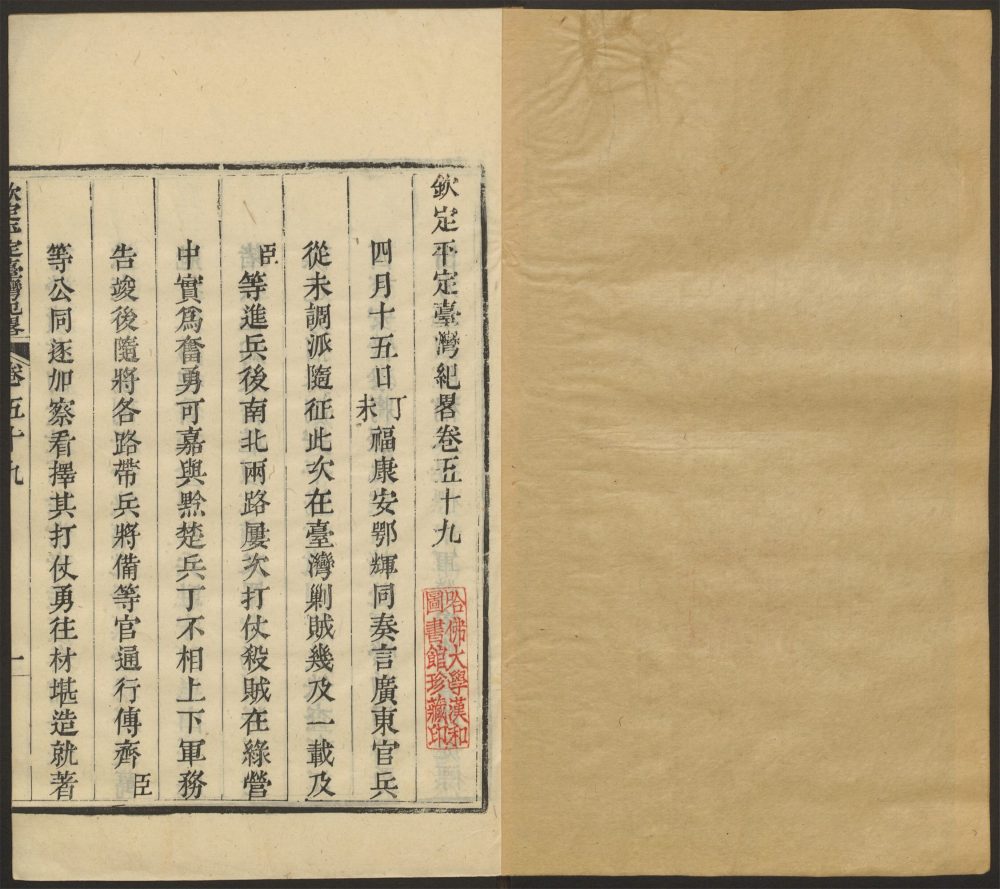 欽定平定臺灣紀畧卷五十九
哈佛大學漢和
圖書館珍藏印
四月十五日丁未福康安鄂輝同奏言廣東官兵
從未調派隨征此次在臺灣剿賊幾及一載及
臣等進兵後南北兩路屢次打仗殺賊在綠營
中實爲奮勇可嘉與黔楚兵丁不相上下軍務
告竣後隨將各路帶兵將備等官通行傳齊臣
等公同逐加察看擇其打仗勇往材堪造就著
欽定平定臺灣紀畧 卷五十九 一